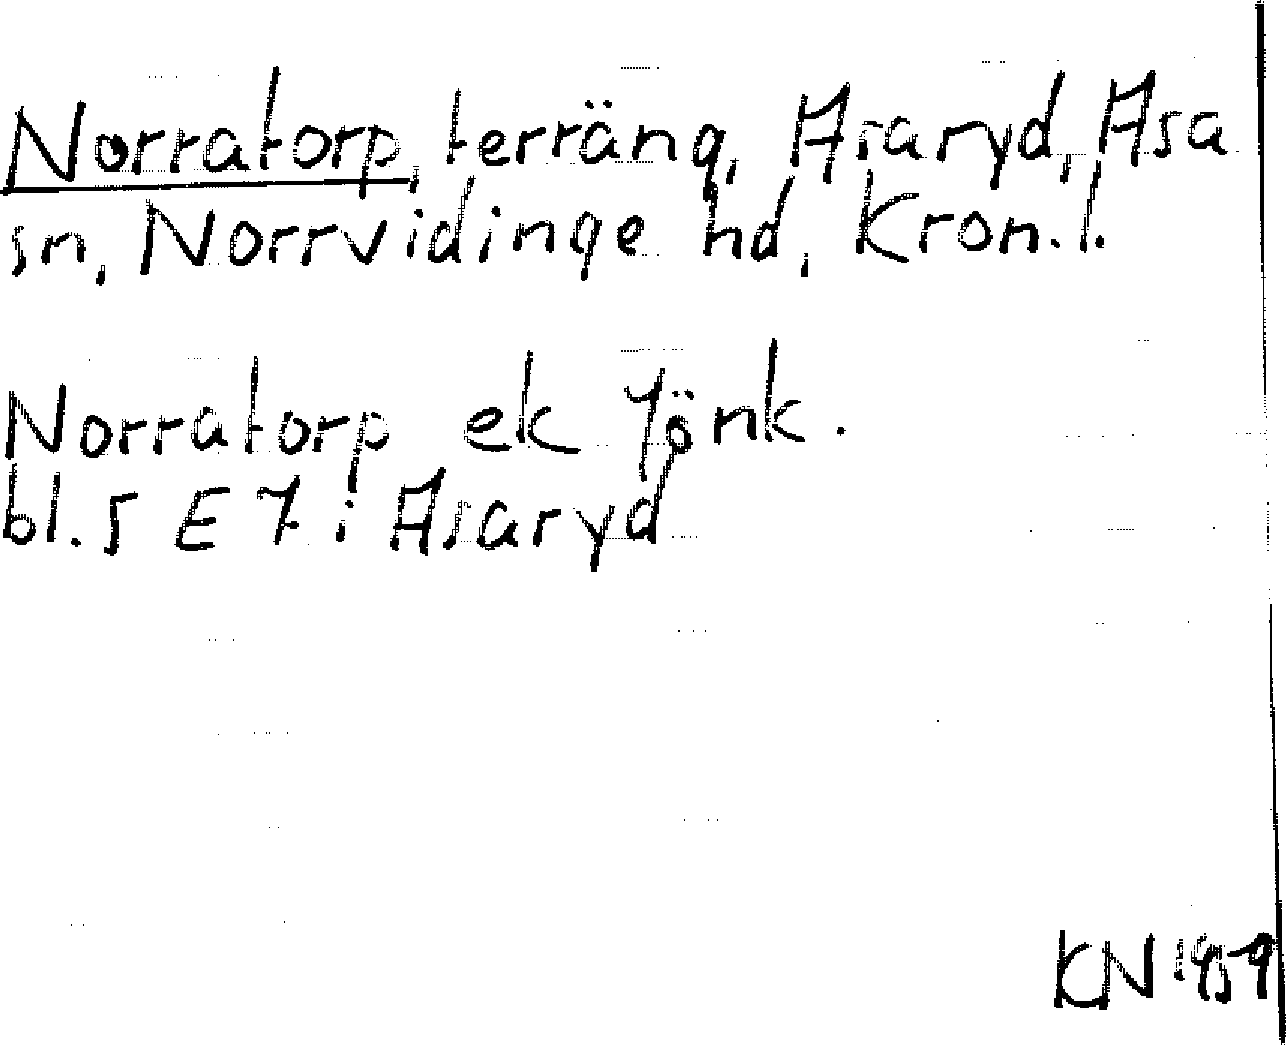 Norratorp, terräng, Asaryd, Asa
sn, Norrvidinge hd, Kron. l.
Norratorp ek Jönk.
bl. 5 E 7 i Asaryd
KN 1959